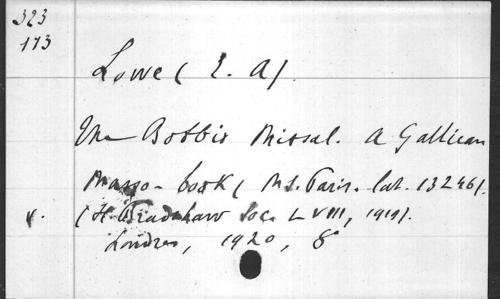 323
173
Lowe (E. A).
The Bobbio Missal. A Gallican
Mass-book (Ms. Paris. lat. 13246).
(H. Bradshaw Soc. LVIII, 1919).
Londres, 1920, 8°